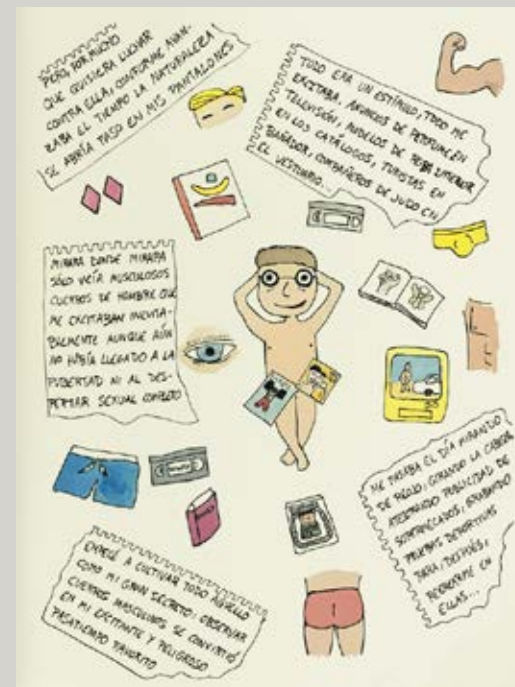 PERO, POR MUCHO
QUE QUISIERA LUCHAR
CONTRA ELLA, CONFORME AVAN-
ZABA EL TIEMPO LA NATURALEZA
SE ABRÍA PASO EN MIS PANTALONES
TODO ERA UN ESTÍMULO, TODO ME
EXCITABA, ANUNCIOS DE PERFUME EN
TELEVISIÓN, MODELOS DE ROPA INTERIOR
EN LOS CATÁLOGOS, TURISTAS EN
BAÑADOR, COMPAÑEROS DE JUDO EN
EL VESTUARIO...
MIRARA DONDE MIRARA
SÓLO VEÍA MUSCULOSOS
CUERPOS DE HOMBRE QUE
ME EXCITABAN INEVITA-
BLEMENTE AUNQUE AÚN
NO HABÍA LLEGADO A LA
PUBERTAD NI AL DES-
PERTAR SEXUAL COMPLETO
ME PASABA EL DÍA MIRANDO
DE REOJO, GIRANDO LA CABEZA
PUBLICIDAD DE
GRABANDO
PRUEBAS DEPORTIVAS
PARA, DESPUÉS,
EN
ELLAS...
EMPECÉ A CULTIVAR TODO AQUELLO
COMO MI GRAN SECRETO: OBSERVAR
CUERPOS MASCULINOS SE CONVIRTIÓ
EN MI EXCITANTE Y PELIGROSO
PASATIEMPO FAVORITO